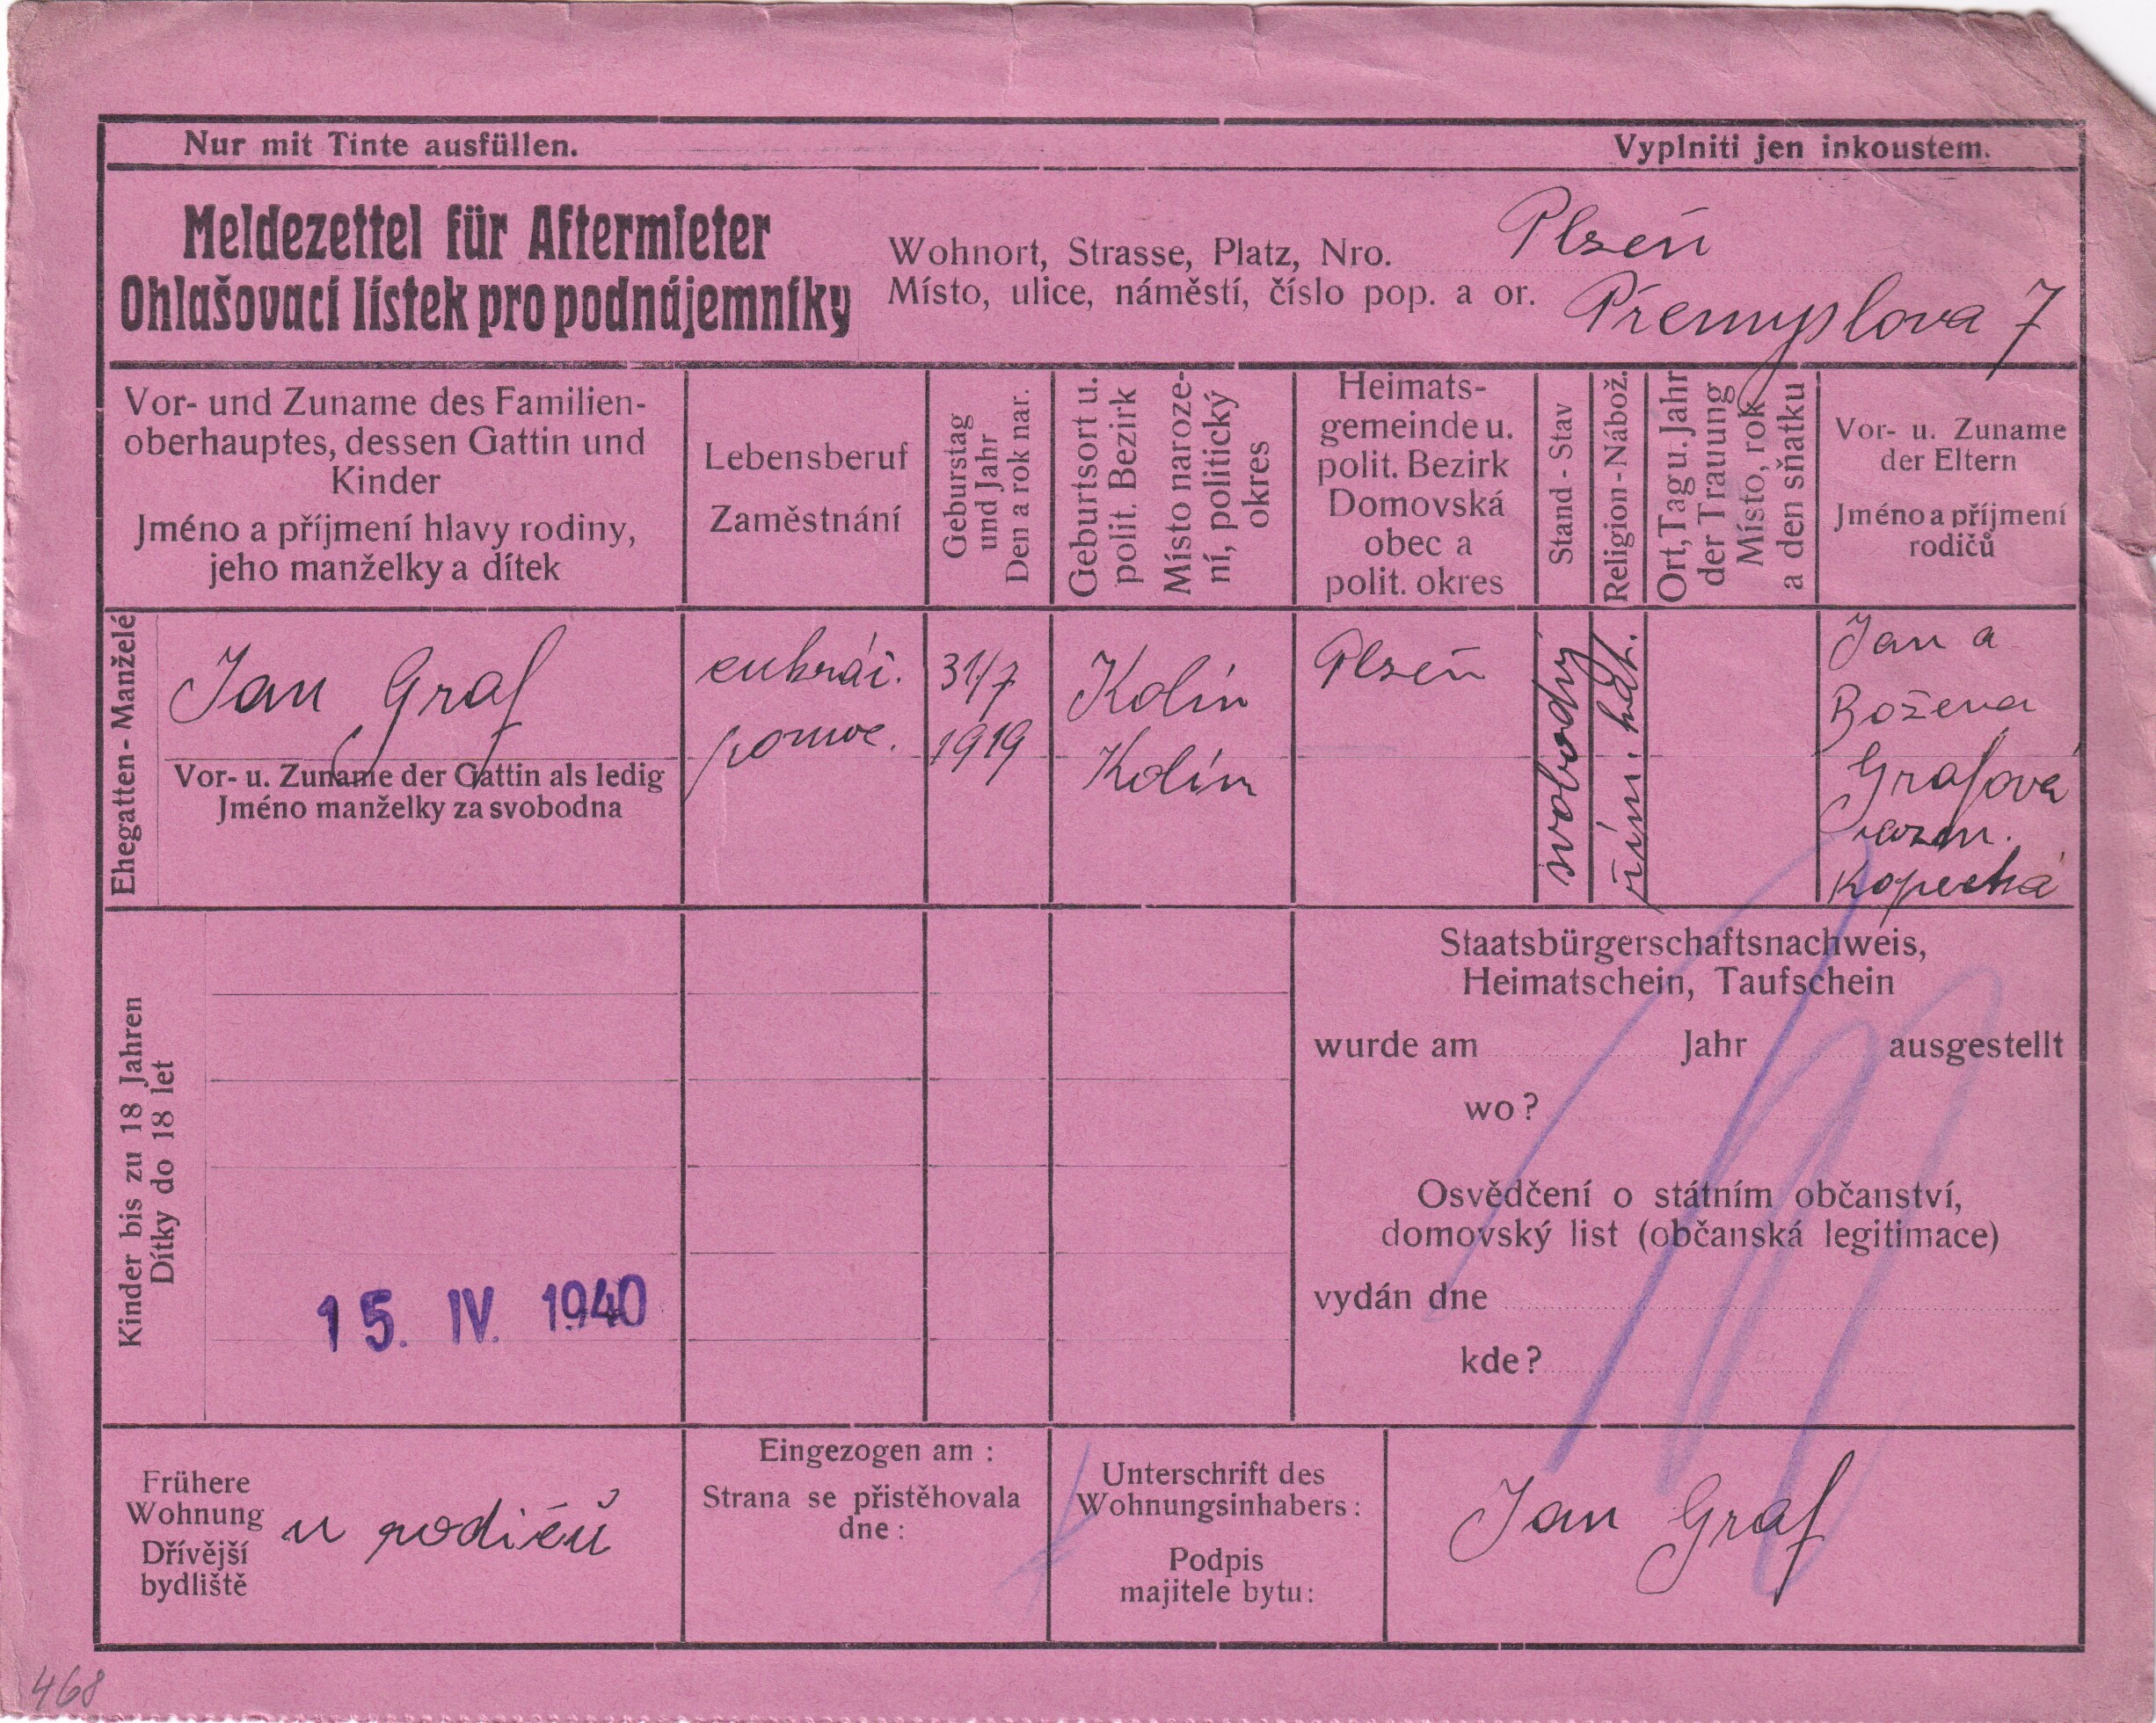 Nur mit Tinte ausfüllen.
Vyplniti jen inkoustem.
Meldezettel für Aftermieter
Ohlašovací lístek pro podnájemníky
Wohnort, Strasse, Platz, Nro.
Místo, ulice, náměstí, číslo pop. a or.
Plzeň
Přemyslova 7
Vor- und Zuname des Familien-
oberhauptes, dessen Gattin und
Kinder
Jméno a příjmení hlavy rodiny,
jeho manželky a dítek
Lebensberuf
Zaměstnání
Geburstag
und Jahr
Den a rok nar.
Geburtsort u.
polit. Bezirk
Místo naroze-
ní, politický
okres
Heimats-
gemeinde u.
polit. Bezirk
Domovská
obec a
polit. okres
Stand - Stav
Religion - Nábož.
Ort, Tag u. Jahr
der Trauung
Místo, rok
a den sňatku
Vor- u. Zuname
der Eltern
Jméno a příjmení
rodičů
Ehegatten - Manželé
Jan Graf
Vor- u. Zuname der Gattin als ledig
Jméno manželky za svobodna
cukrář.
pomoc.
31/7
1919
Kolín
Kolín
Plzeň
svobodný
řím. kat.
Jan a
Božena
Grafová
rozen.
Kopecká
Kinder bis zu 18 Jahren
Dítky do 18 let
15. IV. 1940
Staatsbürgerschaftsnachweis,
Heimatschein, Taufschein
wurde am Jahr ausgestellt
wo?
Osvědčení o státním občanství,
domovský list (občanská legitimace)
vydán dne
kde?
Frühere
Wohnung
Dřívější
bydliště
u rodičů
Eingezogen am :
Strana se přistěhovala
dne :
Unterschrift des
Wohnungsinhabers :
Podpis
majitele bytu :
Jan Graf
468